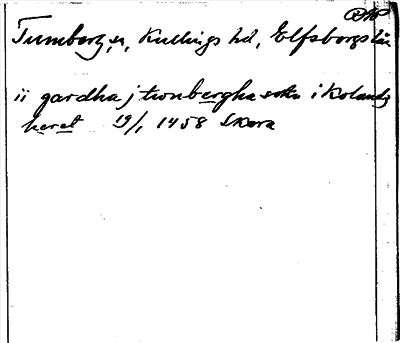 Tumberg, sn, Kullings hd, Elfsborgs län
ii gardha j tunbergha sokn i Kolandz
heret 19/1 1458 Skara